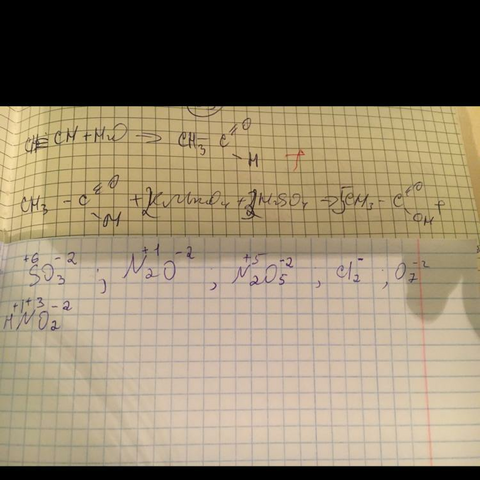 CH≡CH + H₂O → CH₃ - C =O - H
CH₃ - C =O - H + 2KMnO₄ + 3H₂SO₄ → 5CH₃ - C =O OH +
+6 -2 SO₃ ; +1 -2 N₂O ; +5 -2 N₂O₅ , Cl₂⁻ ; O₇⁻²
+1+3 -2 HNO₂